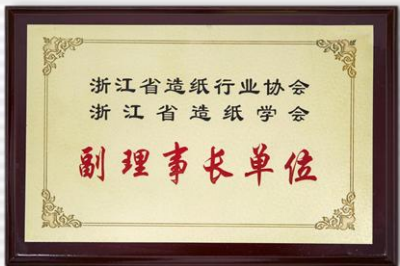 浙江省造纸行业协会
浙江省造纸学会
副理事长单位